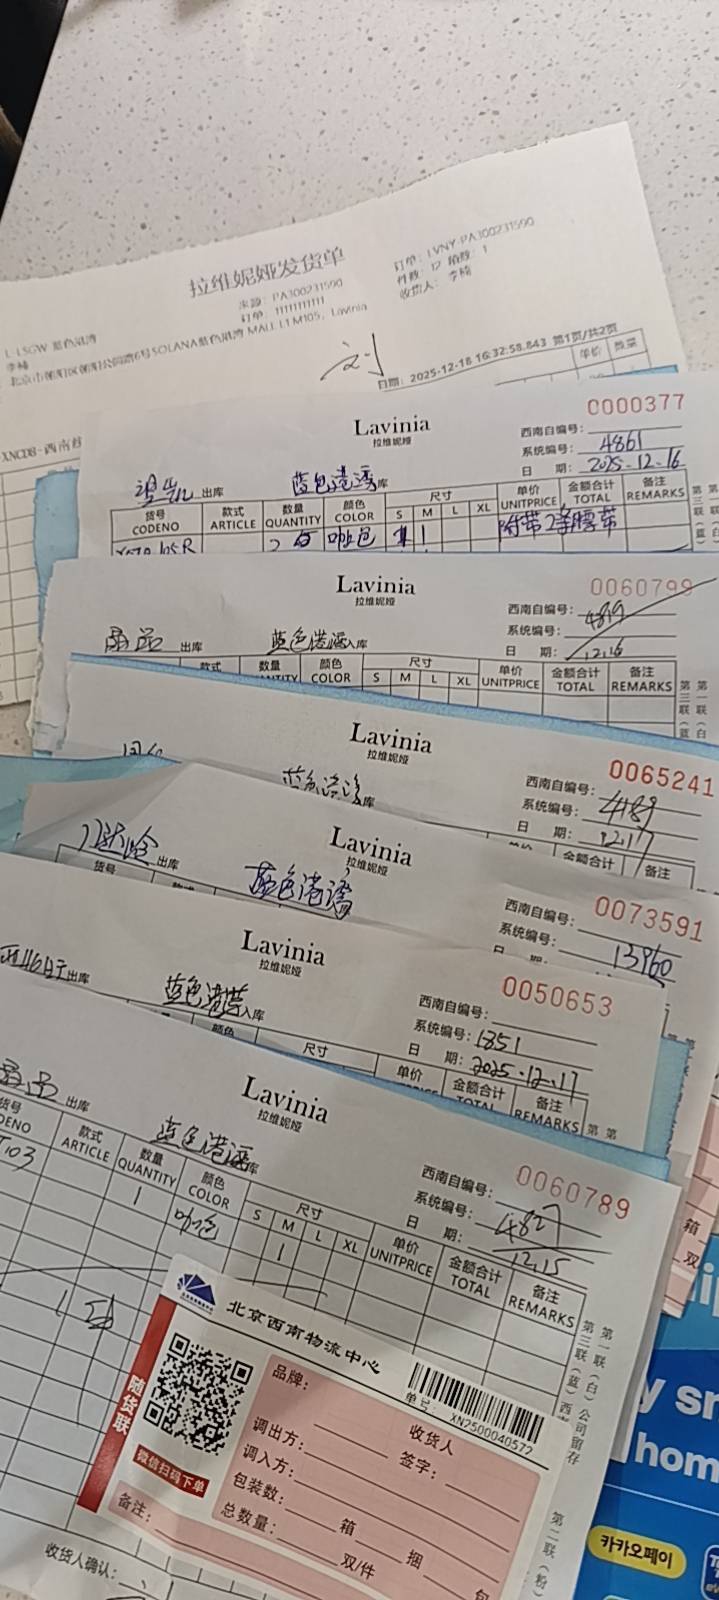 拉维妮娅发货单
来源: PA300231590
订单: 11111111111
订单: LVNY-PA300231590
件数: 12 箱数: 1
收货人: 李楠
L-LSGW 蓝色港湾
李楠
北京市朝阳区朝阳公园路6号SOLANA蓝色港湾 MALL L1 M105, Lavinia
刘
日期: 2025-12-18 16:32:58.843 第1页/共2页
单价 数量
Lavinia
拉维妮娅
0000377
西南自编号:
系统编号: 4861
日 期: 2025.12.16
出库 蓝色港湾 库
货号 CODENO
款式 ARTICLE
数量 QUANTITY
颜色 COLOR
尺寸
S M L XL
单价 UNITPRICE
金额合计 TOTAL
备注 REMARKS
咖色 1 附带2条腰带
Lavinia
拉维妮娅
0060799
西南自编号:
系统编号: 4819
日 期: 12.16
出库 蓝色港湾 入库
款式
数量
颜色 COLOR
尺寸
S M L XL
单价 UNITPRICE
金额合计 TOTAL
备注 REMARKS
Lavinia
拉维妮娅
0065241
西南自编号:
系统编号: 4189
日 期: 12.17
蓝色港湾 库
金额合计
备注
Lavinia
拉维妮娅
0073591
西南自编号:
系统编号: 13960
出库 蓝色港湾
货号
Lavinia
拉维妮娅
0050653
西南自编号:
系统编号: 1851
日 期: 2025.12.17
出库 蓝色港湾 入库
颜色
尺寸
单价
金额合计 TOTAL
备注 REMARKS
Lavinia
拉维妮娅
0060789
西南自编号:
系统编号: 4827
日 期: 12.15
出库 蓝色港湾 库
款式 ARTICLE
数量 QUANTITY
颜色 COLOR
尺寸
S M L XL
单价 UNITPRICE
金额合计 TOTAL
备注 REMARKS
1 咖色 1
第一联(白)公司留存
第三联(蓝)西
第二联(粉)
北京西南物流中心
单号: XN2500040572
随货联
微信扫码下单
品牌:
收货人
调出方: 签字:
调入方:
包装数: 箱 捆 包
总数量: 双/件
备注:
收货人确认:
home
카카오페이